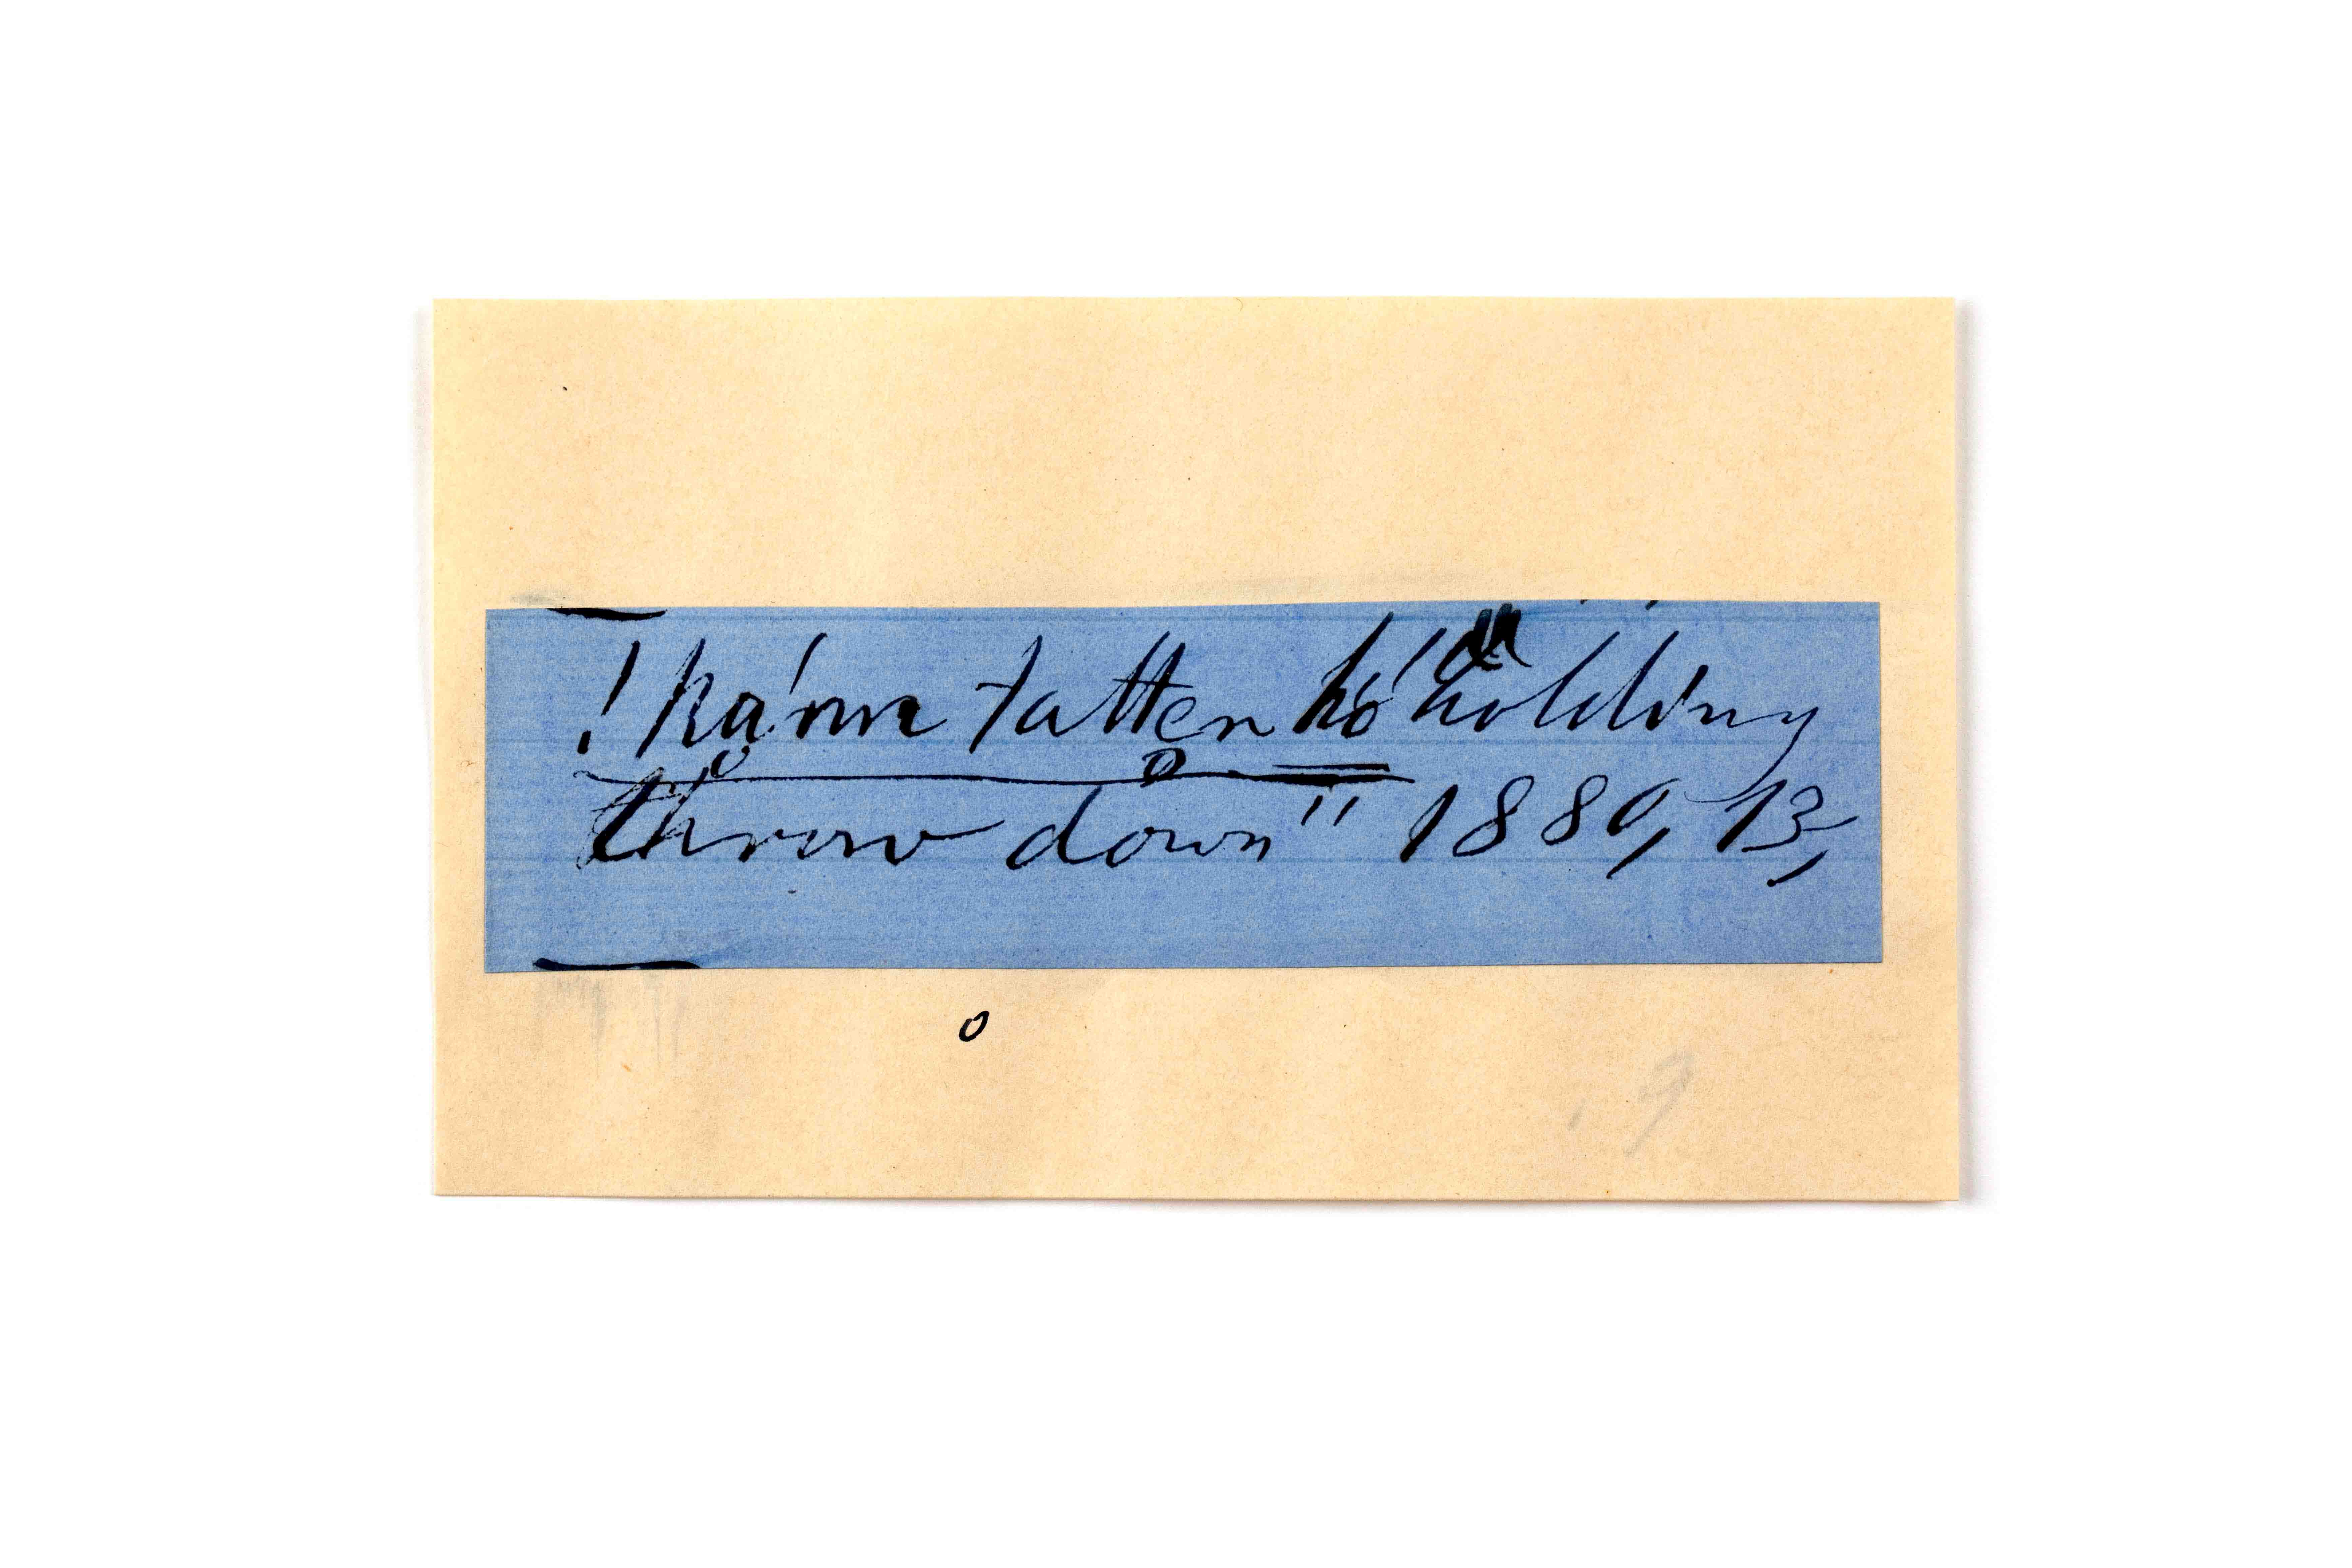 !kạ́nna tatten hó "holding
throw down" 1880, 13,